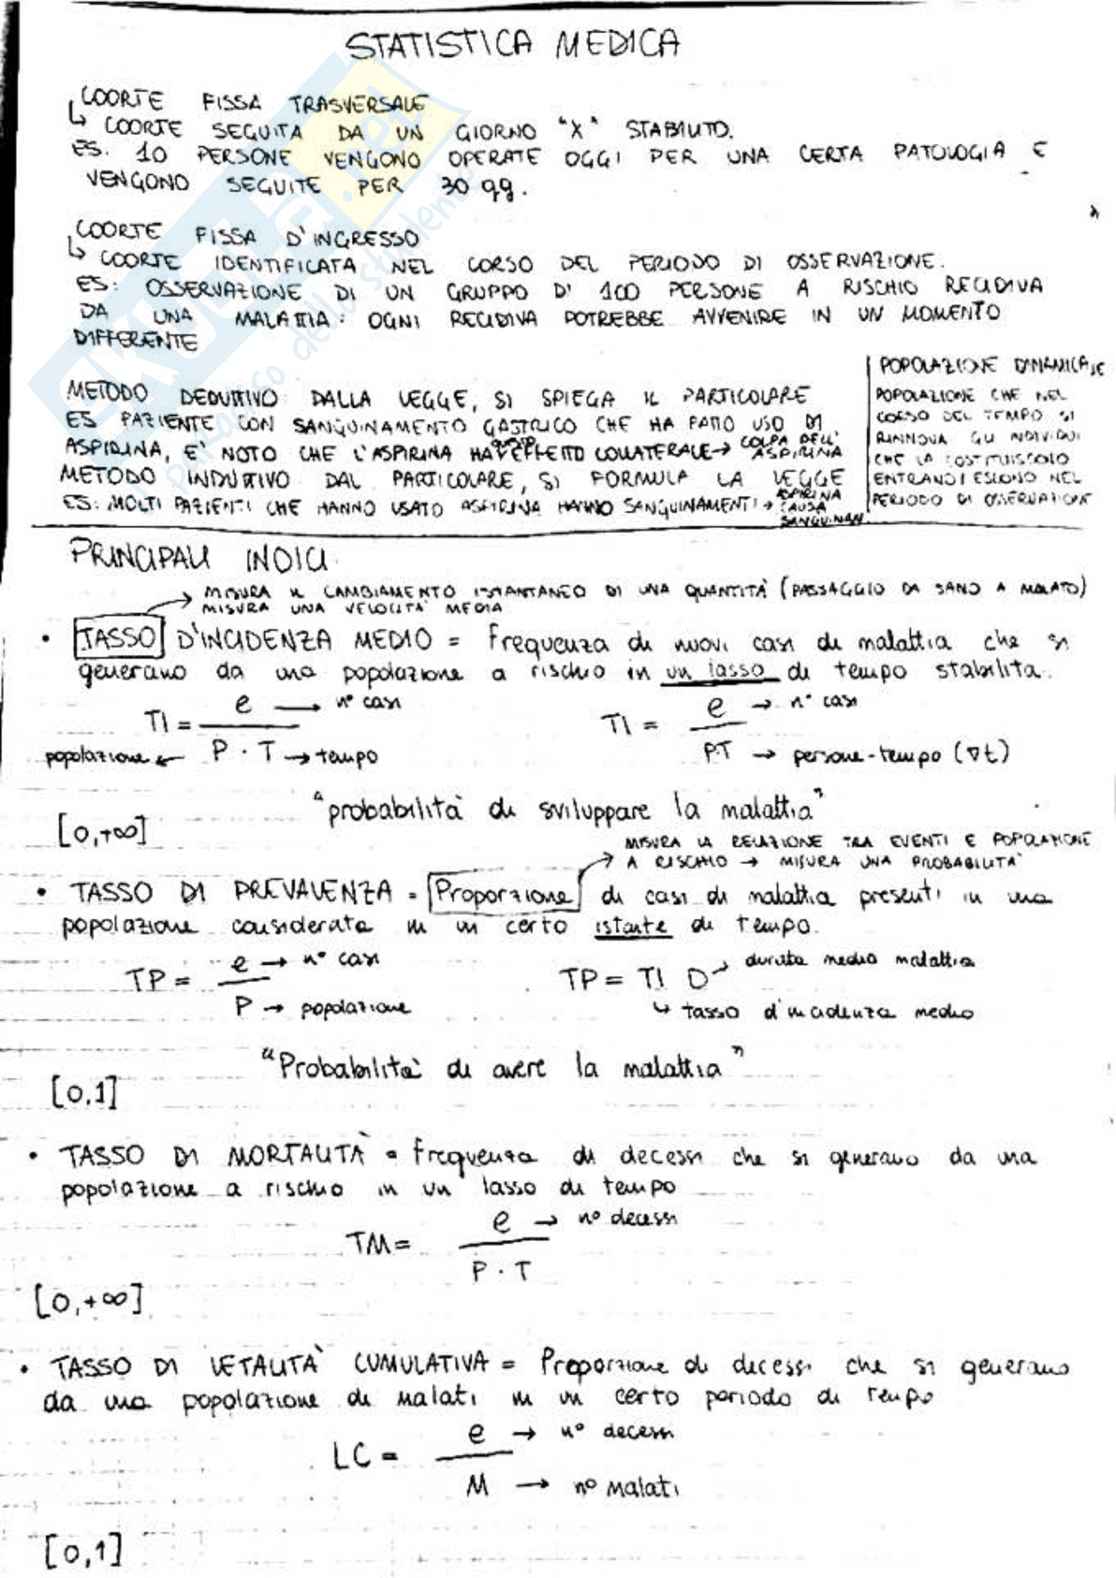 STATISTICA MEDICA
COORTE FISSA TRASVERSALE
↳ COORTE SEGUITA DA UN GIORNO "X" STABILITO.
ES. 10 PERSONE VENGONO OPERATE OGGI PER UNA CERTA PATOLOGIA E
VENGONO SEGUITE PER 30 gg.
COORTE FISSA D'INGRESSO
↳ COORTE IDENTIFICATA NEL CORSO DEL PERIODO DI OSSERVAZIONE.
ES: OSSERVAZIONE DI UN GRUPPO DI 100 PERSONE A RISCHIO RECIDIVA
DA UNA MALATTIA: OGNI RECIDIVA POTREBBE AVVENIRE IN UN MOMENTO
DIFFERENTE
METODO DEDUTTIVO: DALLA LEGGE, SI SPIEGA IL PARTICOLARE
ES PAZIENTE CON SANGUINAMENTO GASTRICO CHE HA FATTO USO DI
ASPIRINA, E' NOTO CHE L'ASPIRINA HA QUESTO EFFETTO COLLATERALE → COLPA DELL'ASPIRINA
METODO INDUTTIVO DAL PARTICOLARE, SI FORMULA LA LEGGE
ES: MOLTI PAZIENTI CHE HANNO USATO ASPIRINA HANNO SANGUINAMENTI → ASPIRINA CAUSA SANGUINAM.
POPOLAZIONE DINAMICA
POPOLAZIONE CHE NEL
CORSO DEL TEMPO SI
RINNOVA GLI INDIVIDUI
CHE LA COSTITUISCONO
ENTRANO/ESCONO NEL
PERIODO DI OSSERVAZIONE
PRINCIPALI INDICI
MISURA IL CAMBIAMENTO ISTANTANEO DI UNA QUANTITÀ (PASSAGGIO DA SANO A MALATO)
MISURA UNA VELOCITÀ MEDIA
• TASSO D'INCIDENZA MEDIO = Frequenza di nuovi casi di malattia che si
generano da una popolazione a rischio in un lasso di tempo stabilita.
TI = e / P · T
e → n° casi
popolazione ← P · T → tempo
TI = e / P·T
e → n° casi
P·T → persone-tempo (∇t)
"probabilità di sviluppare la malattia"
[0,+∞]
MISURA LA RELAZIONE TRA EVENTI E POPOLAZIONE
A RISCHIO → MISURA UNA PROBABILITA'
• TASSO DI PREVALENZA = Proporzione di casi di malattia presenti in una
popolazione considerata in un certo istante di tempo.
TP = e / P
e → n° casi
P → popolazione
TP = TI D → durata media malattia
↳ tasso d'incidenza medio
"Probabilità di avere la malattia"
[0,1]
• TASSO DI MORTALITÀ = frequenza di decessi che si generano da una
popolazione a rischio in un lasso di tempo
TM = e / P · T
e → n° decessi
[0,+∞]
• TASSO DI LETALITÀ CUMULATIVA = Proporzione di decessi che si generano
da una popolazione di malati in un certo periodo di tempo
LC = e / M
e → n° decessi
M → n° malati
[0,1]